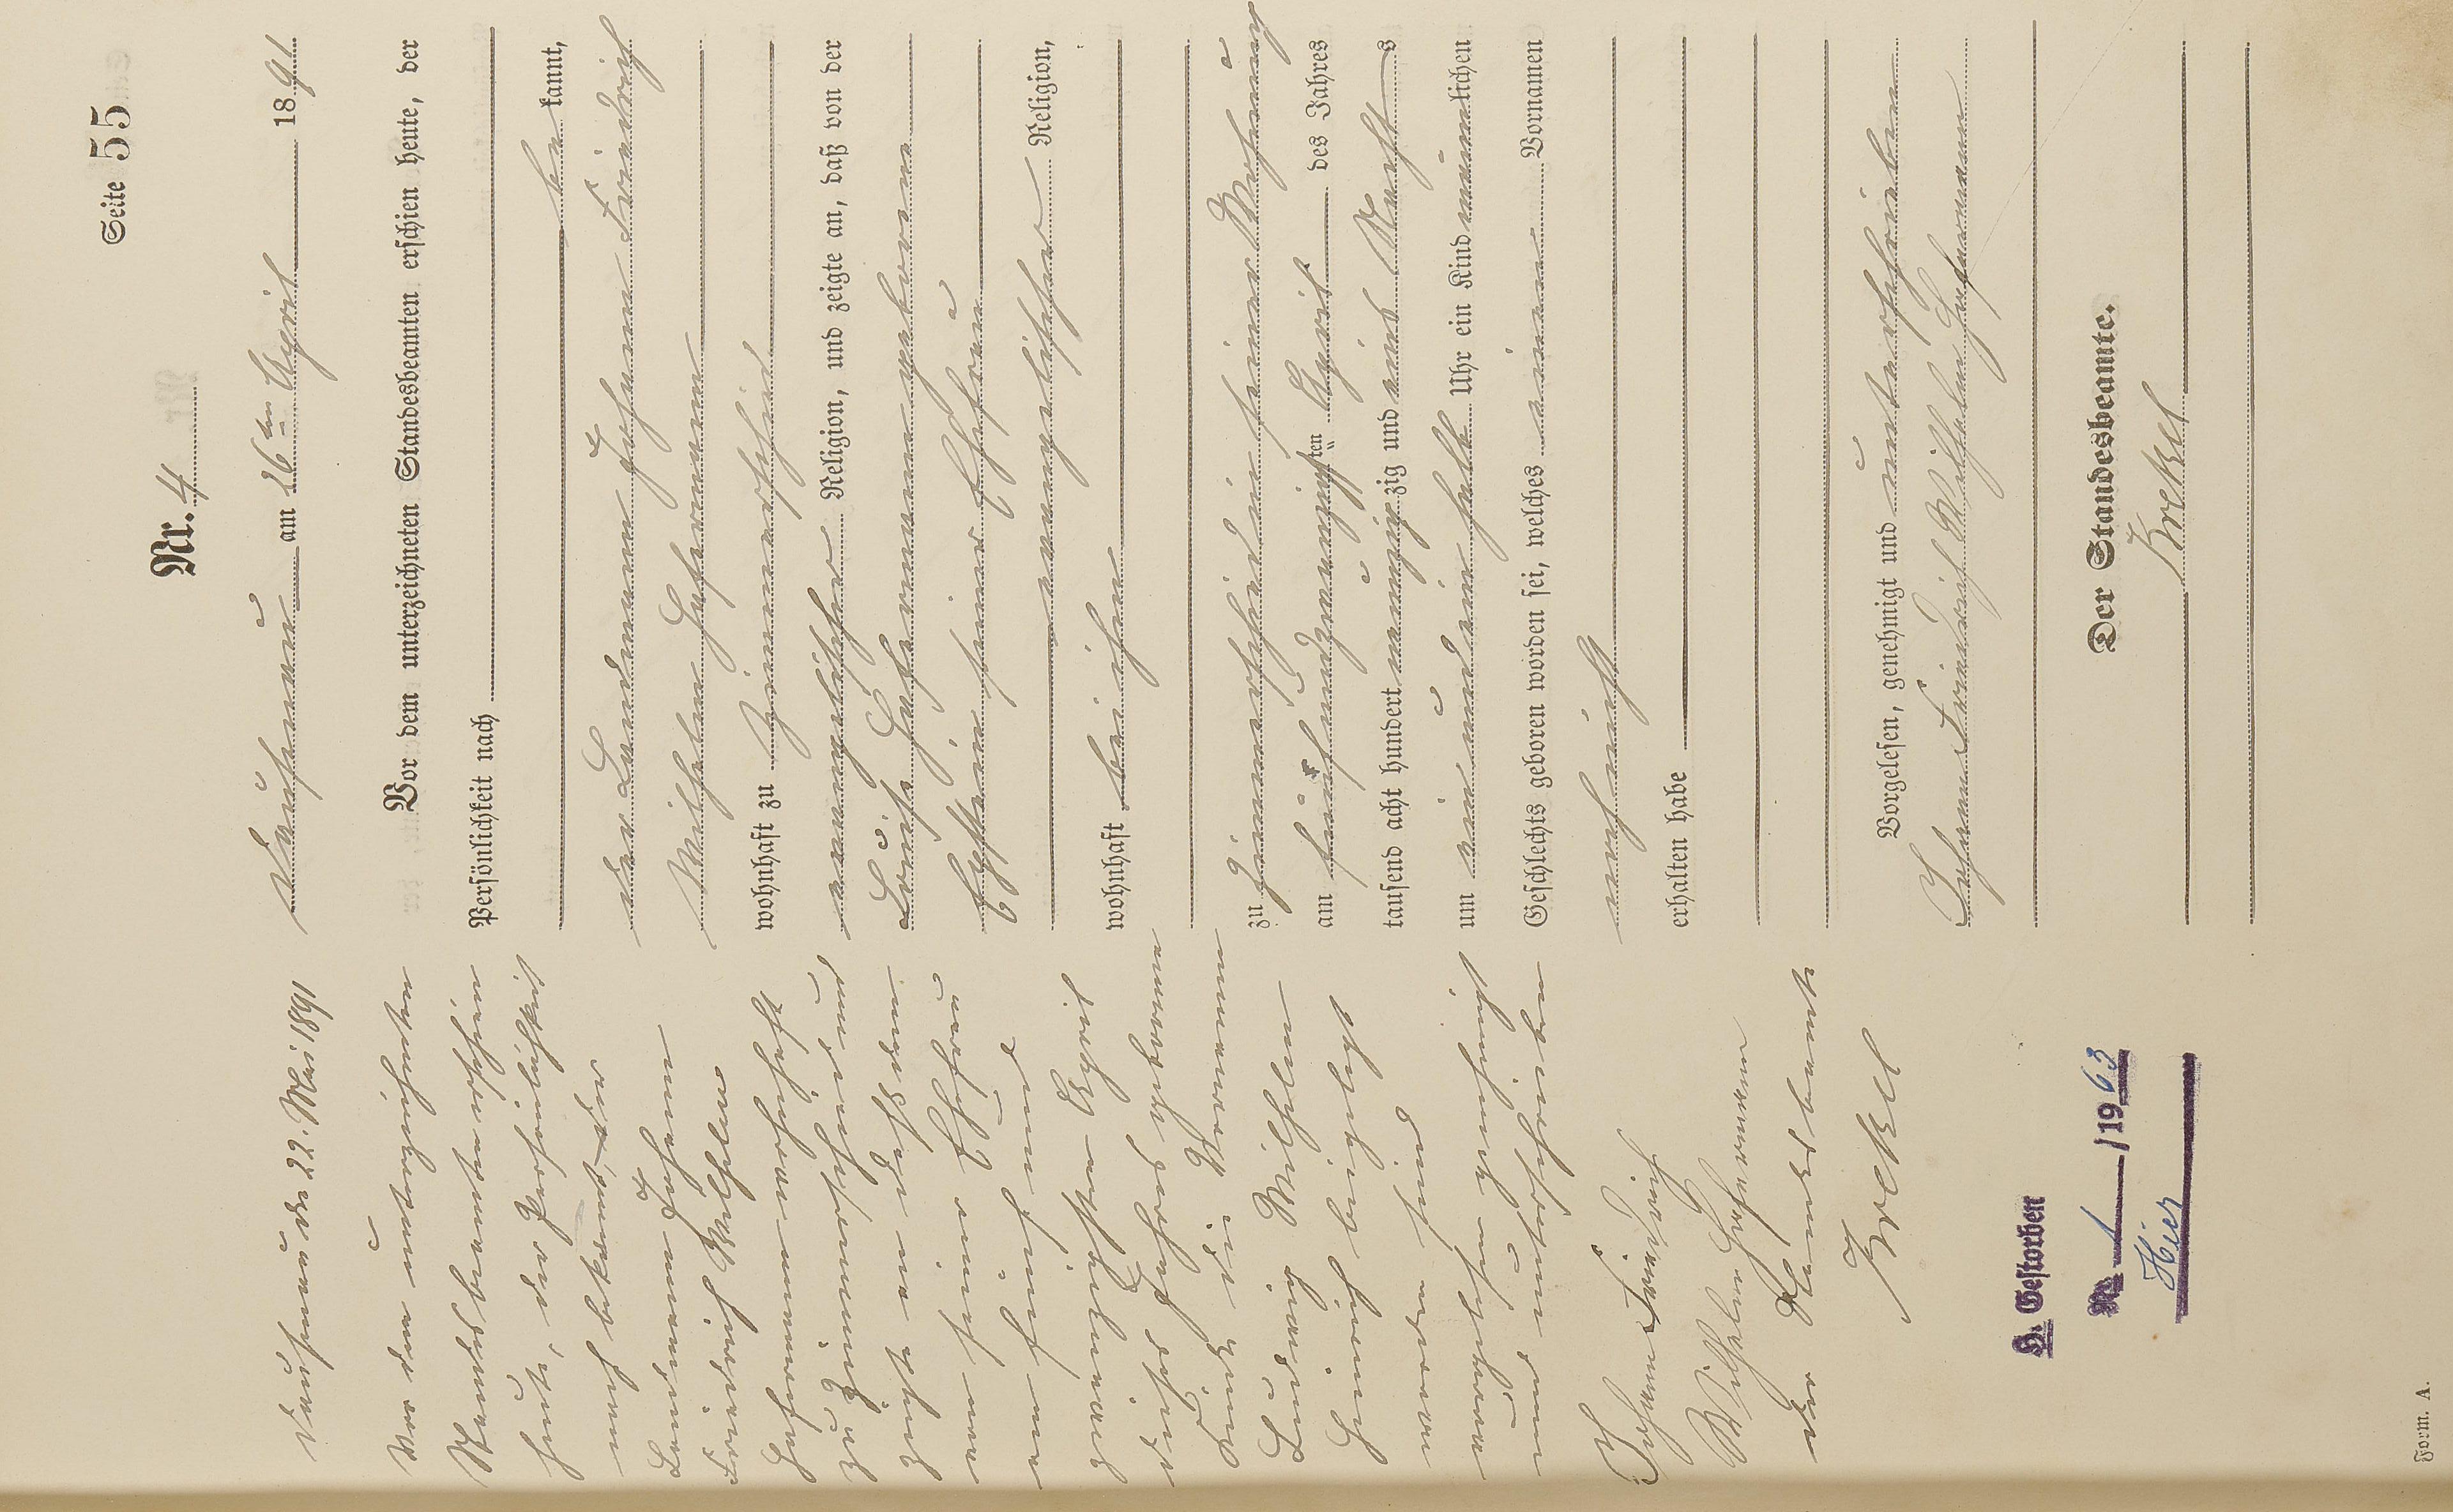 Seite 55
Nr. 4
Dausenau am 26ten April 1891
Vor dem unterzeichneten Standesbeamten erschien heute, der
Persönlichkeit nach
be kannt,
der Landmann Johann Friedrich
Wilhelm Hafermann
wohnhaft zu Zimmerschied
evangelischer Religion, und zeigte an, daß von der
Louise Hafermann geborene
Epstein, seiner Ehefrau
evangelischer Religion,
wohnhaft bei ihm
zu Zimmerschied in seiner Wohnung
am fünfundzwanzigsten April des Jahres
tausend acht hundert neunzig zig und eins Nachts
um ein und ein halb Uhr ein Kind männlichen
Geschlechts geboren worden sei, welches einen Vornamen
noch nicht
erhalten habe
Vorgelesen, genehmigt und unterschrieben
Johann Friedrich Wilhelm Hafermann
Der Standesbeamte.
Krekel
Dausenau den 22. Mai 1891
Vor dem unterzeichneten
Standesbeamten erschien
heute, der Persönlichkeit
nach bekannt, der
Landmann Johann
Friedrich Wilhelm
Hafermann wohnhaft
zu Zimmerschied und
zeigte an, daß dem
von seiner Ehefrau
am fünfund
zwanzigsten April
dieses Jahres geborenen
Kinde die Vornamen
Ludwig Wilhelm
Heinrich beigelegt
worden sind
vorgelesen genehmigt
und unterschrieben
Johann Friedrich
Wilhelm Hafermann
Der Standesbeamte
Krekel
H. Gestorben
Nr. 1 /1963
Hier
Form. A.